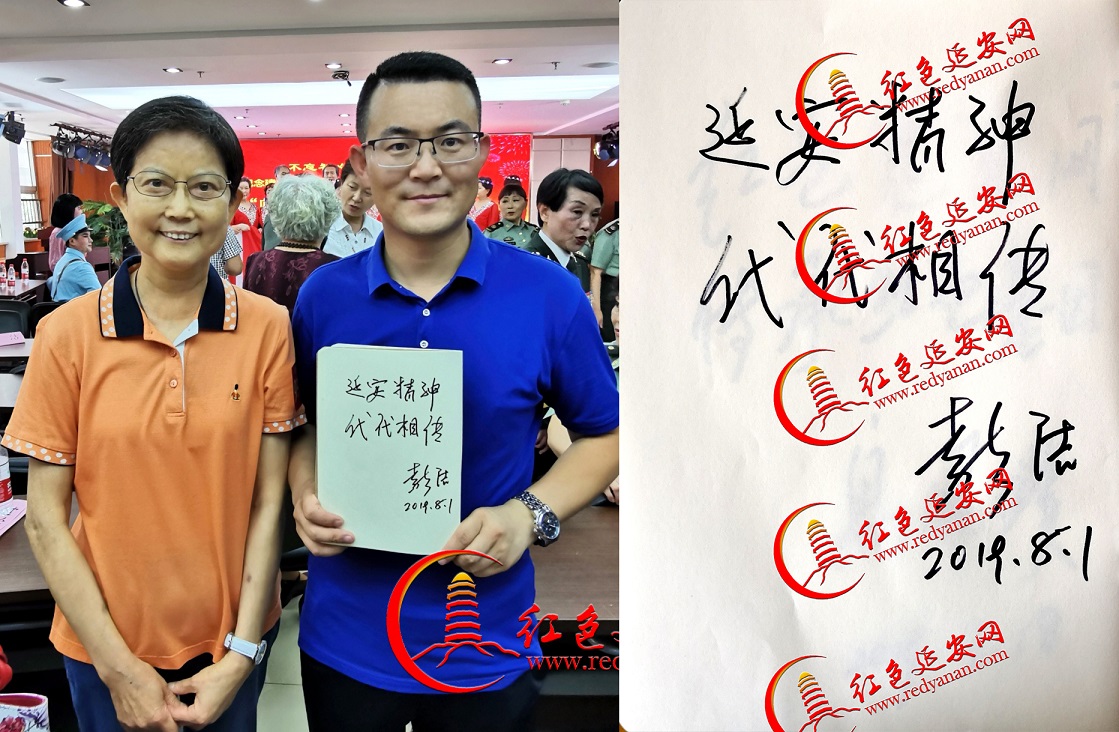 不忘初
延安精神
代代相传
2019.8.1
红色
www.red
红色延安网
www.redyanan.com
延安精神
红色延安网
www.redyanan.com
代代相传
红色延安网
www.redyanan.com
红色延安网
www.redyanan.com
2019.8.1
红色延安网
www.redyanan.com